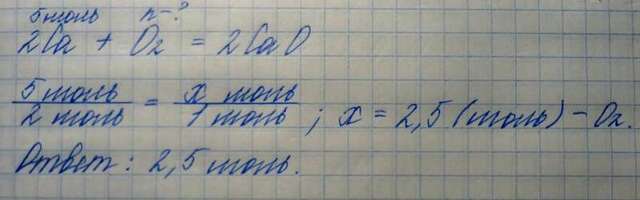 5 моль n - ?
2Ca + O₂ = 2CaO
5 моль / 2 моль = x моль / 1 моль ; x = 2,5 (моль) - O₂.
Ответ: 2,5 моль.